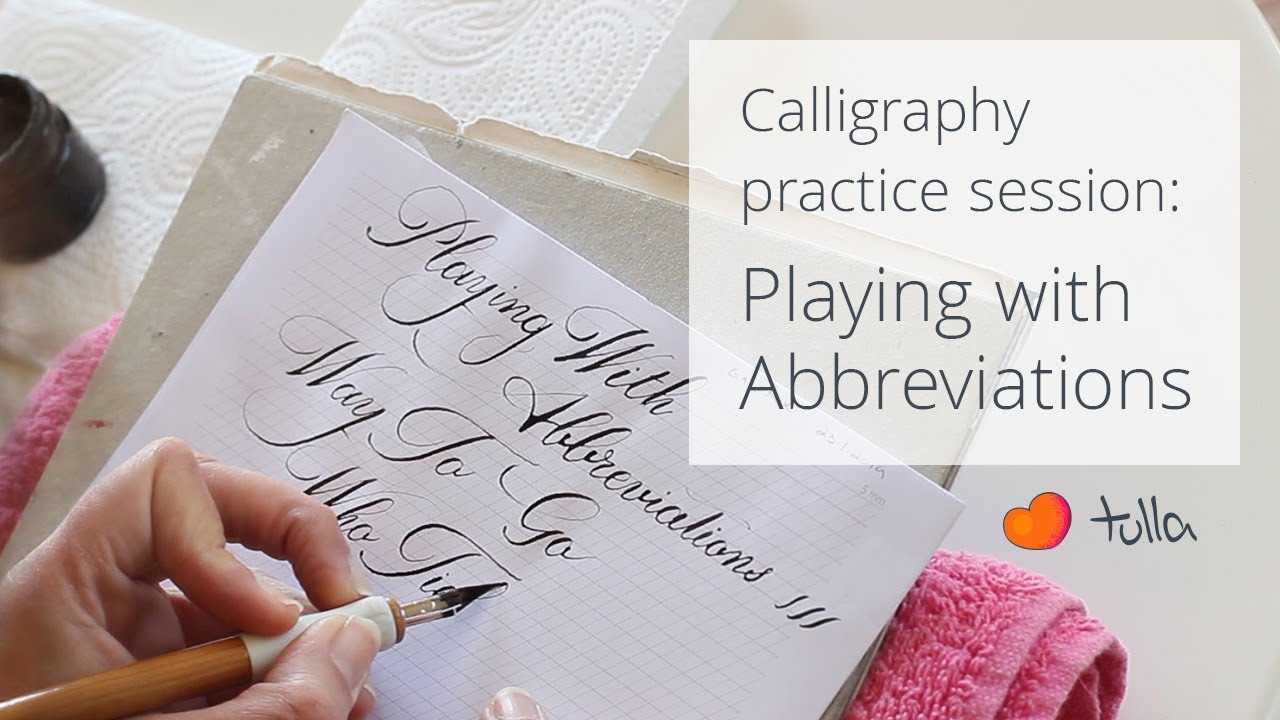 Calligraphy
practice session:
Playing with
Abbreviations
tulla
Playing With
Abbreviations
Way To Go
Who
5 mm